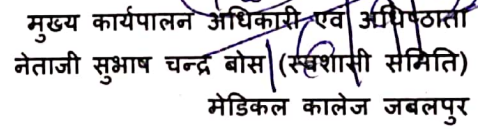 मुख्य कार्यपालन अधिकारी एवं अधिष्ठाता
नेताजी सुभाष चन्द्र बोस (स्वशासी समिति)
मेडिकल कालेज जबलपुर